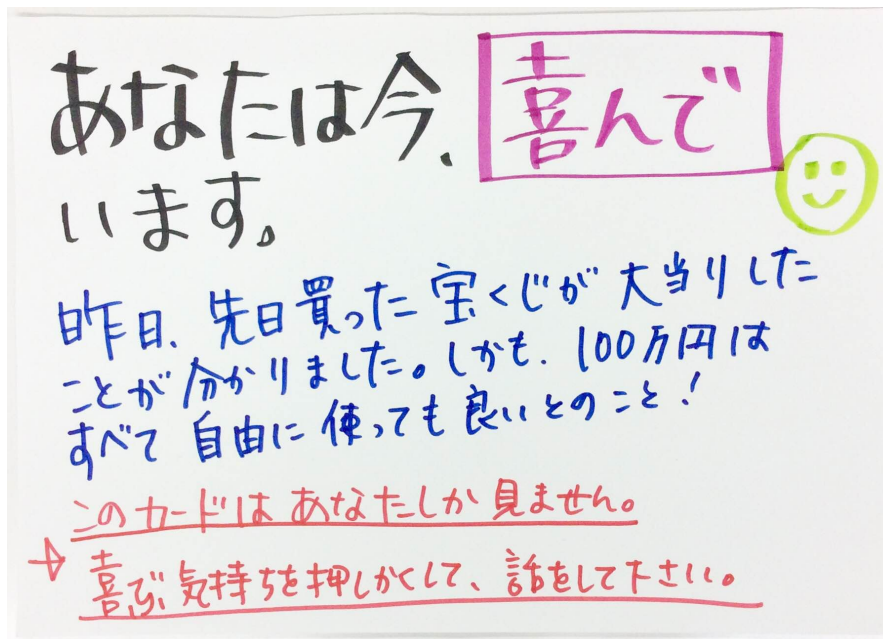 あなたは今、喜んで
います。
昨日、先日買った宝くじが大当りした
ことが分かりました。しかも、100万円は
すべて自由に使っても良いとのこと!
このカードはあなたしか見ません。
→喜ぶ気持ちを押しかくして、話をして下さい。